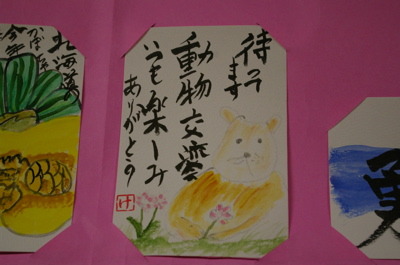 待って
ます
動物交流会
いつも楽しみ
ありがとう
け
北海道の
今年